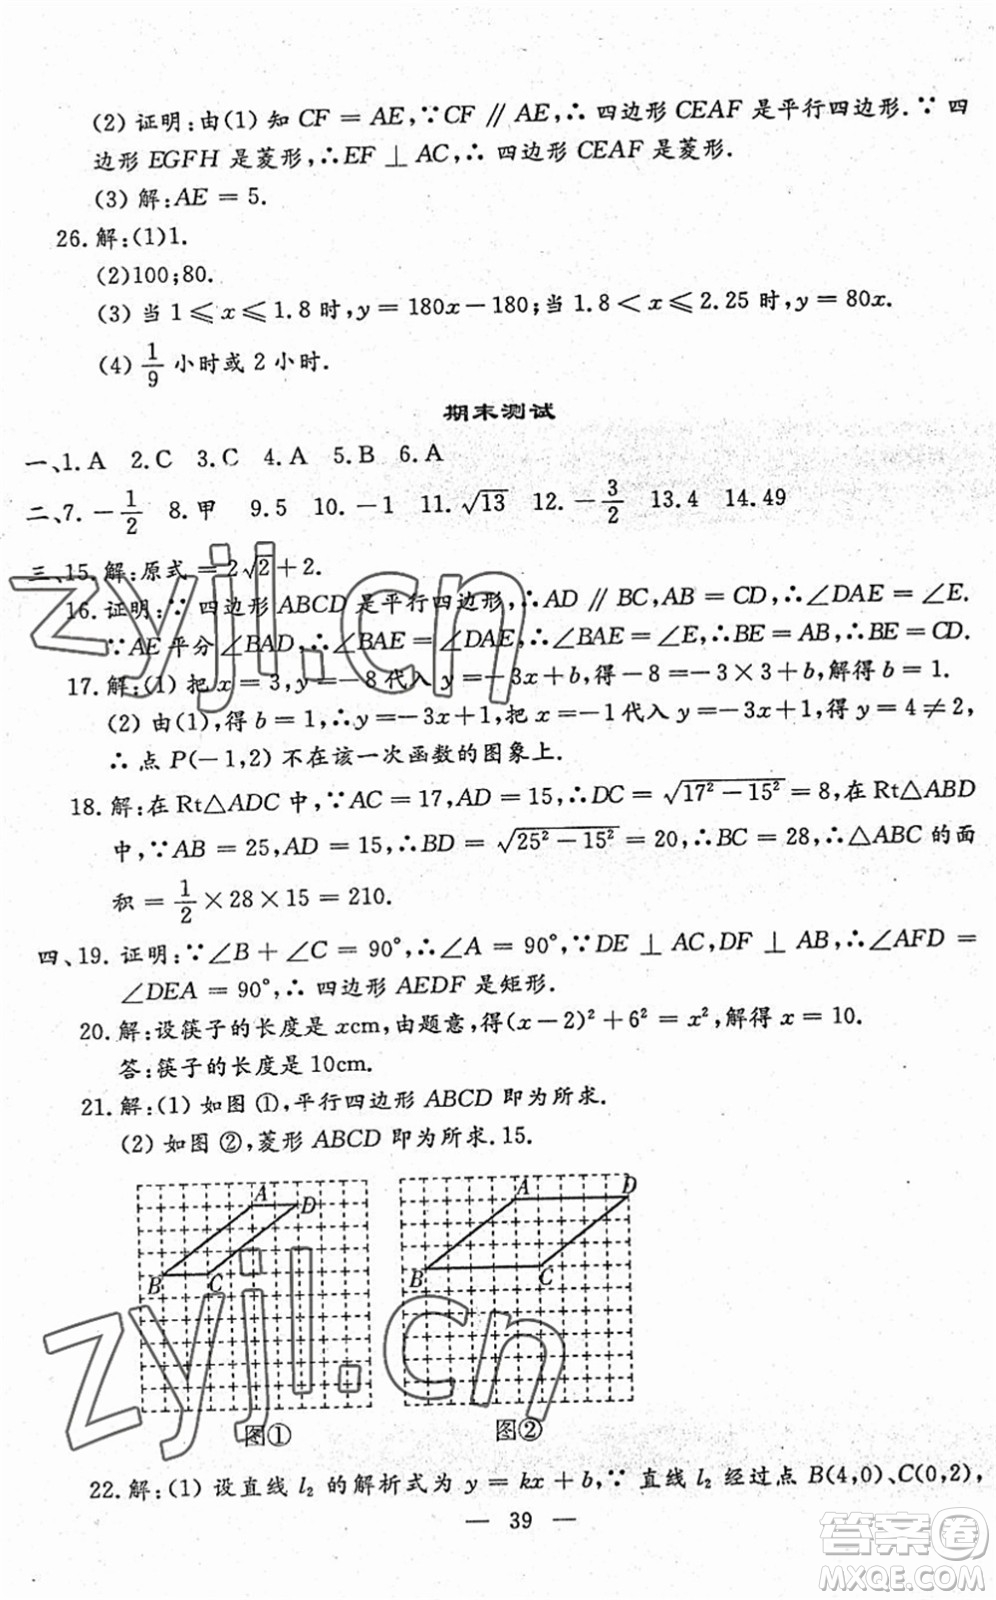 (2) 证明:由(1) 知 CF = AE,∵CF ∥ AE,∴ 四边形 CEAF 是平行四边形.∵ 四
边形 EGFH 是菱形,∴EF ⊥ AC,∴ 四边形 CEAF 是菱形.
(3) 解:AE = 5.
26.解:(1)1.
(2)100;80.
(3) 当 1 ⩽ x ⩽ 1.8 时,y = 180x−180;当 1.8 < x ⩽ 2.25 时,y = 80x.
(4) 1/9 小时或 2 小时.
期末测试
一、1.A 2.C 3.C 4.A 5.B 6.A
二、7.−1/2 8.甲 9.5 10.−1 11.√13 12.−3/2 13.4 14.49
三、15.解:原式 = 2√2 + 2.
16.证明:∵ 四边形 ABCD 是平行四边形,∴AD ∥ BC,AB = CD,∴∠DAE = ∠E.
∵AE 平分 ∠BAD,∴∠BAE = ∠DAE,∴∠BAE = ∠E,∴BE = AB,∴BE = CD.
17.解:(1) 把 x = 3,y =−8 代入 y =−3x+b,得 −8 =−3×3+b,解得 b = 1.
(2) 由(1),得 b = 1,∴y =−3x+1,把 x =−1 代入 y =−3x+1,得 y = 4 ≠ 2,
∴ 点 P(−1,2) 不在该一次函数的图象上.
18.解:在 Rt△ADC 中,∵AC = 17,AD = 15,∴DC = √(17²−15²) = 8,在 Rt△ABD
中,∵AB = 25,AD = 15,∴BD = √(25²−15²) = 20,∴BC = 28,∴△ABC 的面
积 = 1/2 × 28 × 15 = 210.
四、19.证明:∵∠B + ∠C = 90°,∴∠A = 90°,∵DE ⊥ AC,DF ⊥ AB,∴∠AFD =
∠DEA = 90°,∴ 四边形 AEDF 是矩形.
20.解:设筷子的长度是 xcm,由题意,得(x−2)²+6² = x²,解得 x = 10.
答:筷子的长度是 10cm.
21.解:(1) 如图 ①,平行四边形 ABCD 即为所求.
(2) 如图 ②,菱形 ABCD 即为所求.15.
A D B C
A D B C
图① 图②
22.解:(1) 设直线 l₂ 的解析式为 y = kx + b,∵ 直线 l₂ 经过点 B(4,0)、C(0,2),
— 39 —
zyjl.cn
zyjl.cn
答案圈
MXQE.COM